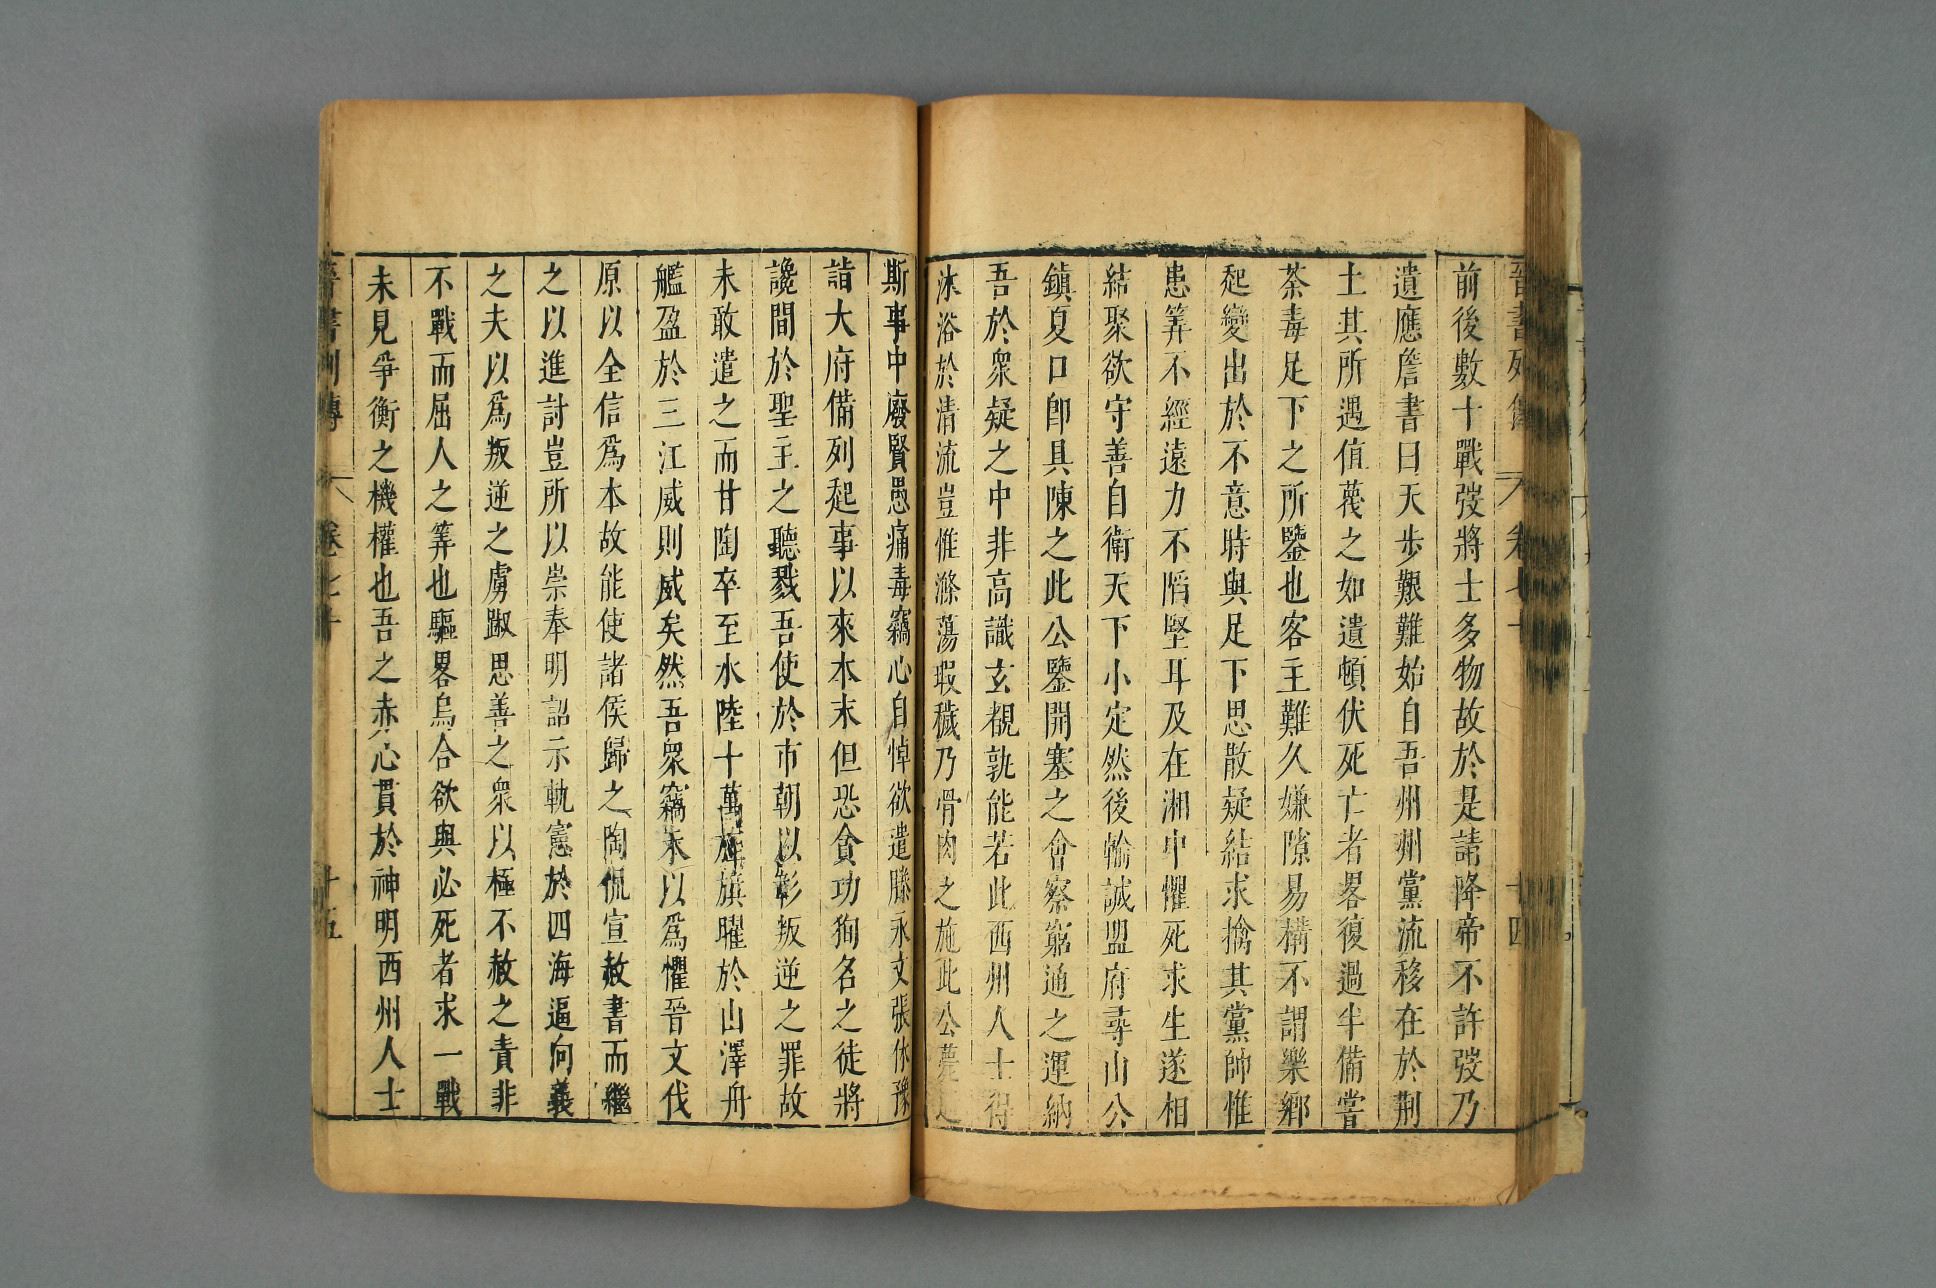 晉書列傳 卷七十 十四
前後數十戰弢將士多物故於是請降帝不許弢乃
遺應詹書曰天步艱難始自吾州州黨流移在於荆
土其所遇值蔑之如遺頓伏死亡者畧復過半備嘗
荼毒足下之所鑒也客主難久嫌隙易構不謂樂鄉
起變出於不意時與足下思散疑結求擒其黨帥惟
患筭不經遠力不陷堅耳及在湘中懼死求生遂相
結聚欲守善自衛天下小定然後輸誠盟府尋山公
鎮夏口卽具陳之此公鑒開塞之會察窮通之運納
吾於衆疑之中非高識玄覩孰能若此西州人士得
沐浴於清流豈惟滌蕩瑕穢乃骨肉之施此公薨
斯事中廢賢愚痛毒竊心自悼欲遣滕永文張休豫
詣大府備列起事以來本末但恐貪功狥名之徒將
讒間於聖主之聽戮吾使於市朝以彰叛逆之罪故
未敢遣之而甘陶卒至水陸十萬旌旗曜於山澤舟
艦盈於三江威則威矣然吾衆竊未以爲懼晉文伐
原以全信爲本故能使諸侯歸之陶侃宣赦書而繼
之以進討豈所以崇奉明詔示軌憲於四海逼向義
之夫以爲叛逆之虜踧思善之衆以極不赦之責非
不戰而屈人之筭也驅畧烏合欲與必死者求一戰
未見爭衡之機權也吾之赤心貫於神明西州人士
晉書列傳 卷七十 十五